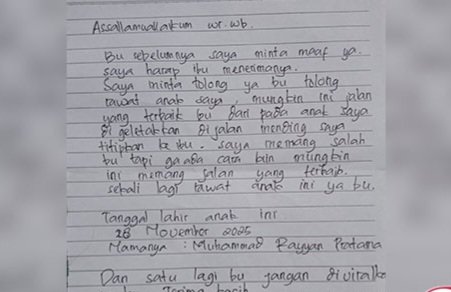 Assallamuallaikum wr. wb.
Bu sebelumnya saya minta maaf ya.
saya harap ibu menerimanya.
Saya minta tolong ya bu tolong
rawat anak saya, mungkin ini jalan
yang terbaik bu dari pada anak saya
di geletakkan dijalan mending saya
titipkan ke ibu. saya memang salah
bu tapi gaada cara bin mungkin
ini memang jalan yang terbaik.
sekali lagi rawat anak ini ya bu.
Tanggal lahir anak ini
28 November 2025
Namanya : Muhammad Rayyan Pratama
Dan satu lagi bu jangan diviralka
Terima kasih